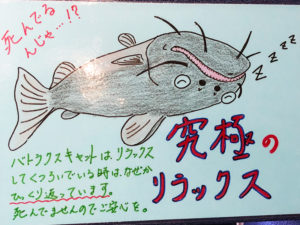 死んでる
んじゃ…!?
zzzz
究極の
リラックス
バトラクスキャットは、リラックス
してくつろいでいる時は、なぜか
ひっくり返っています。
死んでませんのでご安心を。